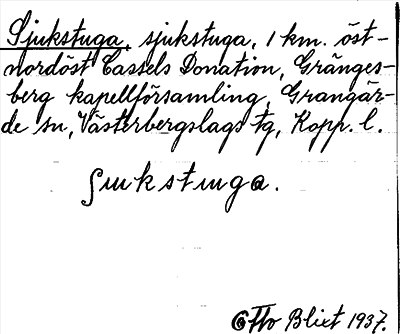 Sjukstuga, sjukstuga, 1 km. öst-
nordöst Cassels Donation, Gränges-
berg kapellförsamling, Grangär-
de sn, Västerbergslags tg, Kopp. l.
ʃukstuga.
Otto Blixt 1937.